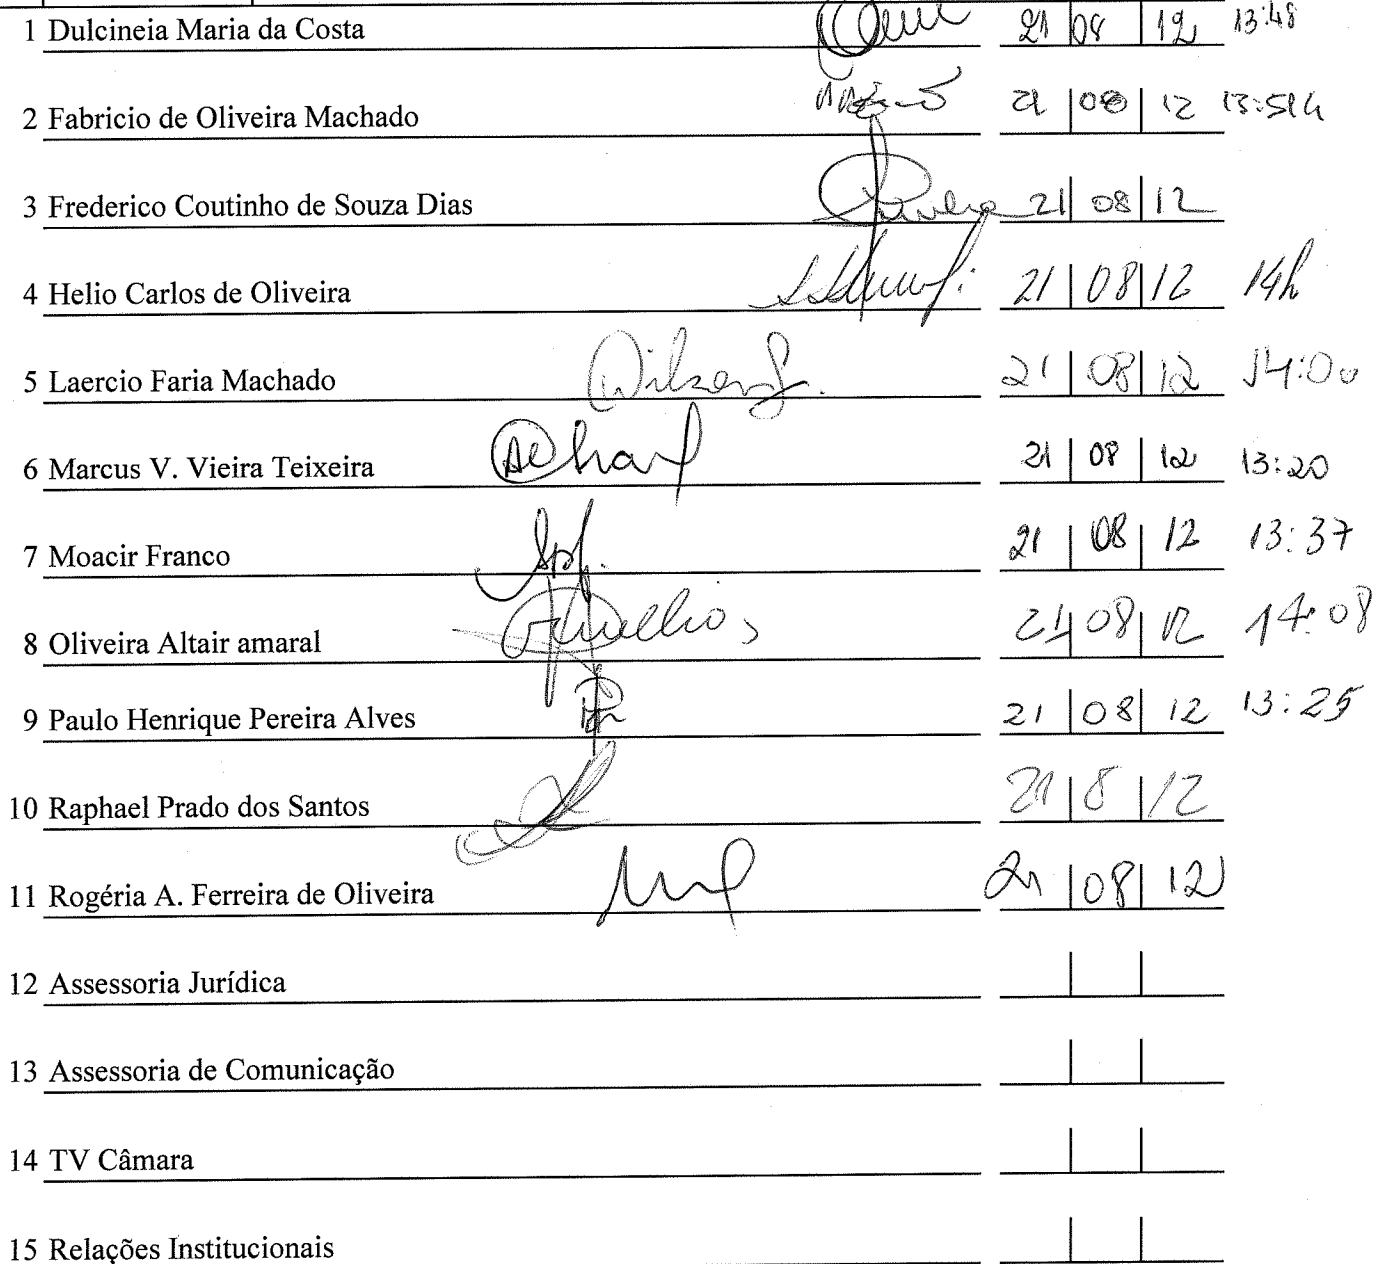 1 Dulcineia Maria da Costa 21 08 12 13:48
2 Fabricio de Oliveira Machado 21 08 12 13:51h
3 Frederico Coutinho de Souza Dias 21 08 12
4 Helio Carlos de Oliveira 21 08 12 14h
5 Laercio Faria Machado 21 08 12 14:00
6 Marcus V. Vieira Teixeira 21 08 12 13:20
7 Moacir Franco 21 08 12 13:37
8 Oliveira Altair amaral 21 08 12 14:08
9 Paulo Henrique Pereira Alves 21 08 12 13:25
10 Raphael Prado dos Santos 21 8 12
11 Rogéria A. Ferreira de Oliveira 21 08 12
12 Assessoria Jurídica
13 Assessoria de Comunicação
14 TV Câmara
15 Relações Institucionais